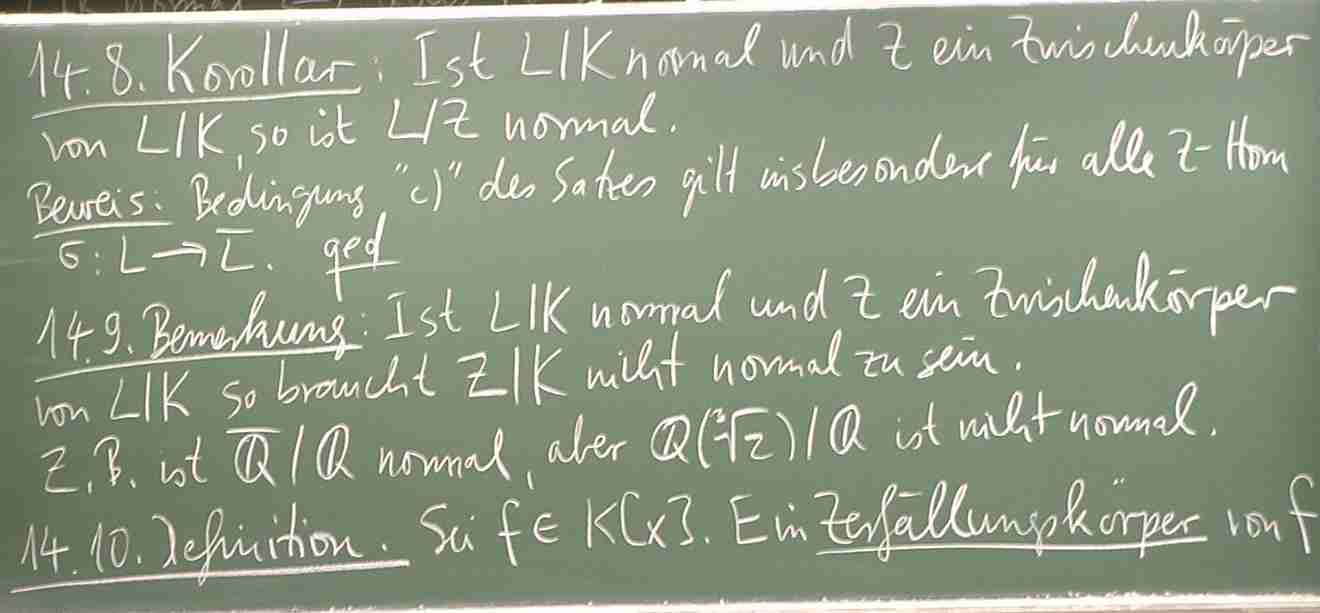 14.8. Korollar: Ist L/K normal und Z ein Zwischenkörper
von L/K, so ist L/Z normal.
Beweis: Bedingung "c)" des Satzes gilt insbesondere für alle Z-Hom
σ: L → L̅. qed
14.9. Bemerkung: Ist L/K normal und Z ein Zwischenkörper
von L/K so braucht Z/K nicht normal zu sein.
Z.B. ist Q̅/Q normal, aber Q(∛2)/Q ist nicht normal.
14.10. Definition. Sei f ∈ K[x]. Ein Zerfällungskörper von f